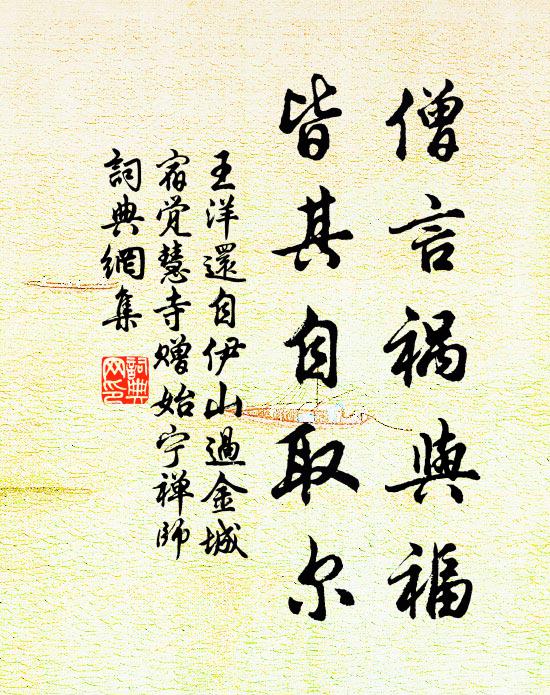 僧言禍與福
皆其自取尔
王洋還自伊山過金城
宿觉慧寺赠始宁禅師
詞典網集
詞典網印